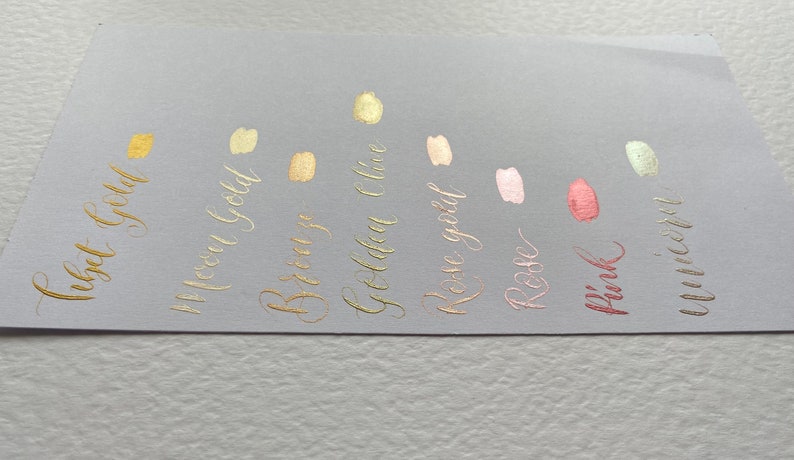 Tibet Gold
Moon Gold
Bronze
Golden Olive
Rose gold
Rose
Pink
unicorn